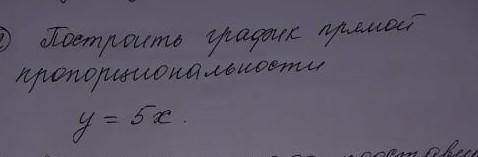 Построить график прямой
пропорциональности
y = 5x.